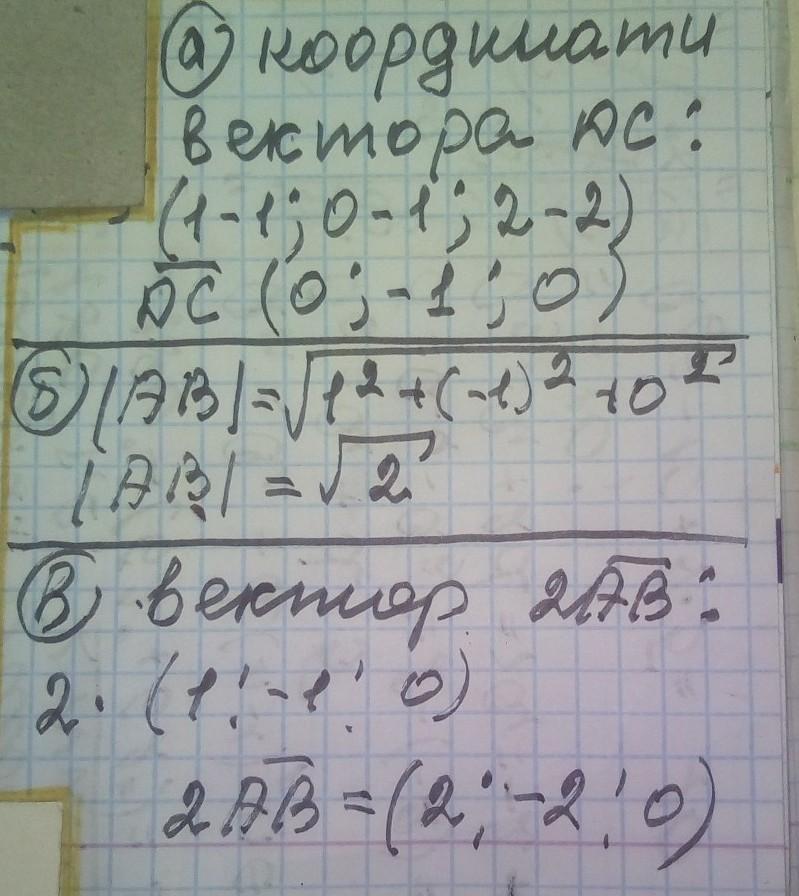 а) координати
вектора DC:
(1-1; 0-1; 2-2)
DC (0; -1; 0)
б) |AB| = √1² + (-1)² + 0²
|AB| = √2
в) вектор 2AB:
2 · (1; -1; 0)
2AB = (2; -2; 0)